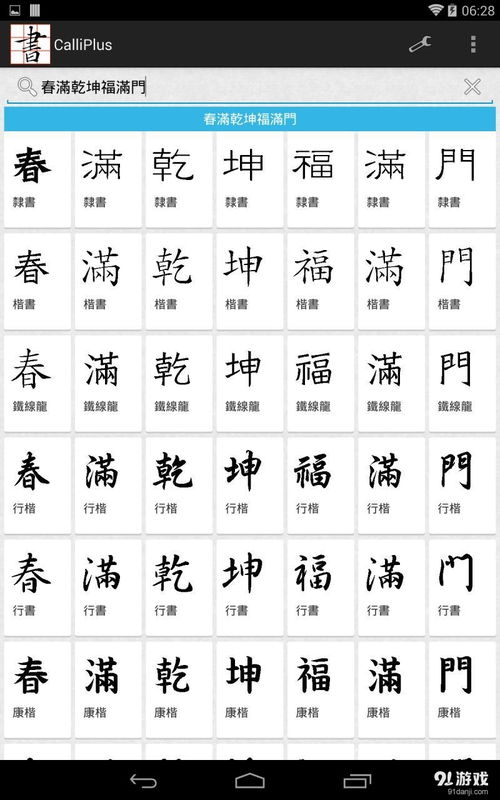 06:28
書 CalliPlus
春滿乾坤福滿門
春滿乾坤福滿門
春 滿 乾 坤 福 滿 門
隸書 隸書 隸書 隸書 隸書 隸書 隸書
春 滿 乾 坤 福 滿 門
楷書 楷書 楷書 楷書 楷書 楷書 楷書
春 滿 乾 坤 福 滿 門
鐵線龍 鐵線龍 鐵線龍 鐵線龍 鐵線龍 鐵線龍 鐵線龍
春 滿 乾 坤 福 滿 門
行楷 行楷 行楷 行楷 行楷 行楷 行楷
春 滿 乾 坤 福 滿 門
行書 行書 行書 行書 行書 行書 行書
春 滿 乾 坤 福 滿 門
康楷 康楷 康楷 康楷 康楷 康楷 康楷
91游戏
91danji.com